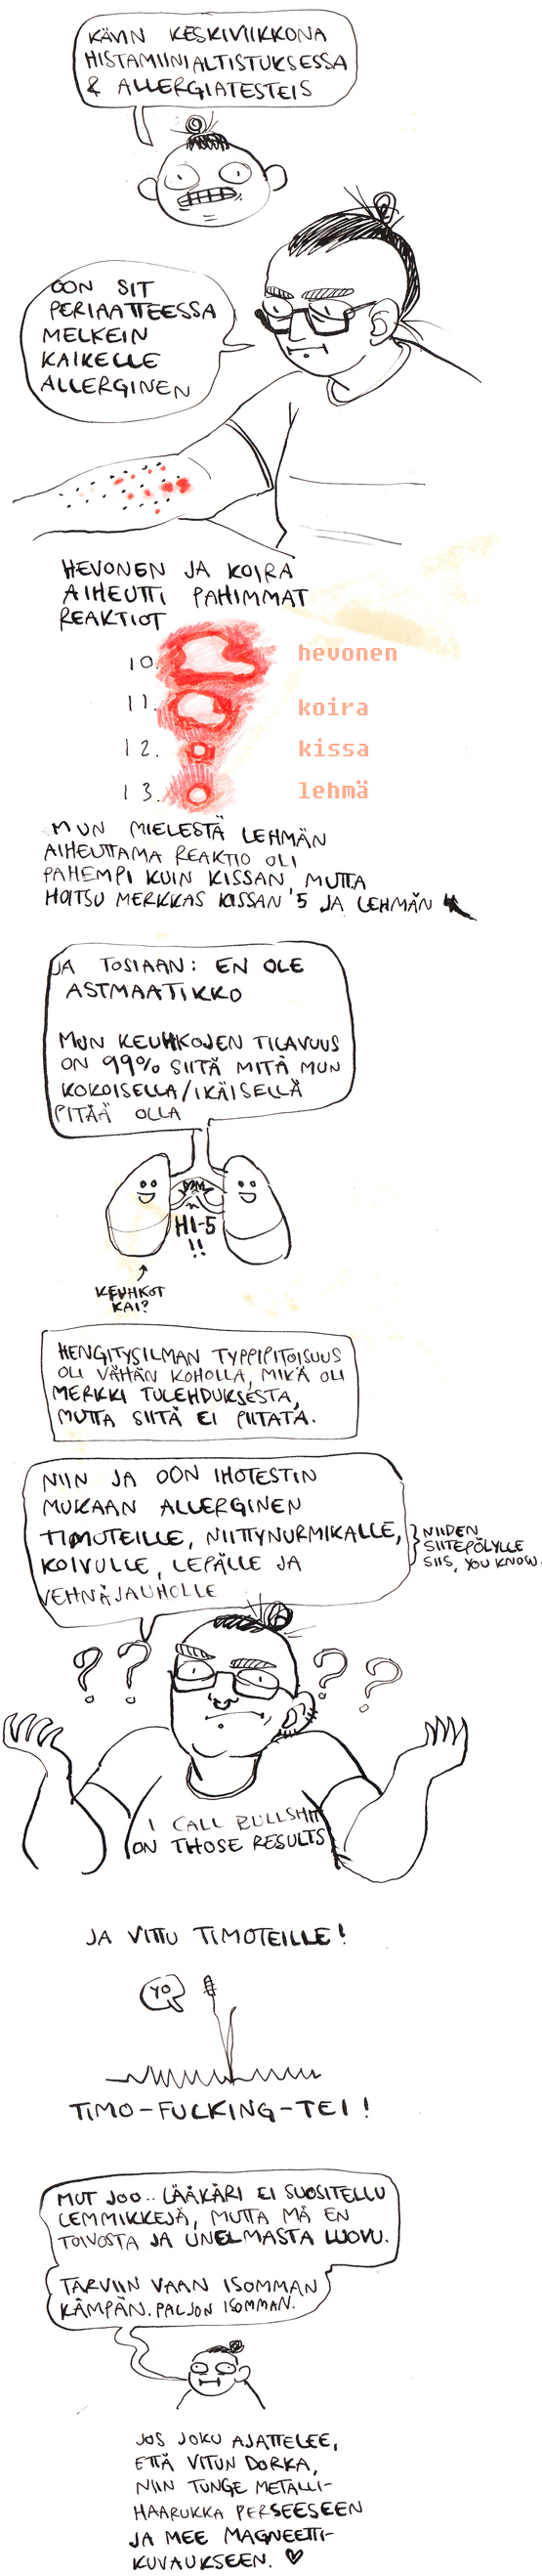 KÄVIN KESKIVIIKKONA
HISTAMIINIALTISTUKSESSA
& ALLERGIATESTEIS
OON SIT
PERIAATTEESSA
MELKEIN
KAIKELLE
ALLERGINEN
HEVONEN JA KOIRA
AIHEUTTI PAHIMMAT
REAKTIOT
10. hevonen
11. koira
12. kissa
13. lehmä
MUN MIELESTÄ LEHMÄN
AIHEUTTAMA REAKTIO OLI
PAHEMPI KUIN KISSAN, MUTTA
HOITSU MERKKAS KISSAN 5 JA LEHMÄN 4
JA TOSIAAN: EN OLE
ASTMAATIKKO
MUN KEUHKOJEN TILAVUUS
ON 99% SIITÄ MITÄ MUN
KOKOISELLA/IKÄISELLÄ
PITÄÄ OLLA
HI-5
!!
KEUHKOT
KAI?
HENGITYSILMAN TYPPIPITOISUUS
OLI VÄHÄN KOHOLLA, MIKÄ OLI
MERKKI TULEHDUKSESTA,
MUTTA SIITÄ EI PIITATA.
NIIN JA OON IHOTESTIN
MUKAAN ALLERGINEN
TIMOTEILLE, NIITTYNURMIKALLE,
KOIVULLE, LEPÄLLE JA
VEHNÄJAUHOLLE
NIIDEN
SIITEPÖLYLLE
SIIS, YOU KNOW.
? ? ? ?
I CALL BULLSHIT
ON THOSE RESULTS
JA VITTU TIMOTEILLE!
YO
TIMO-FUCKING-TEI!
MUT JOO.. LÄÄKÄRI EI SUOSITELLU
LEMMIKKEJÄ, MUTTA MÄ EN
TOIVOSTA JA UNELMASTA LUOVU.
TARVIIN VAAN ISOMMAN
KÄMPÄN. PALJON ISOMMAN.
JOS JOKU AJATTELEE,
ETTÄ VITUN DORKA,
NIIN TUNGE METALLI-
HAARUKKA PERSEESEEN
JA MEE MAGNEETTI-
KUVAUKSEEN. ♡